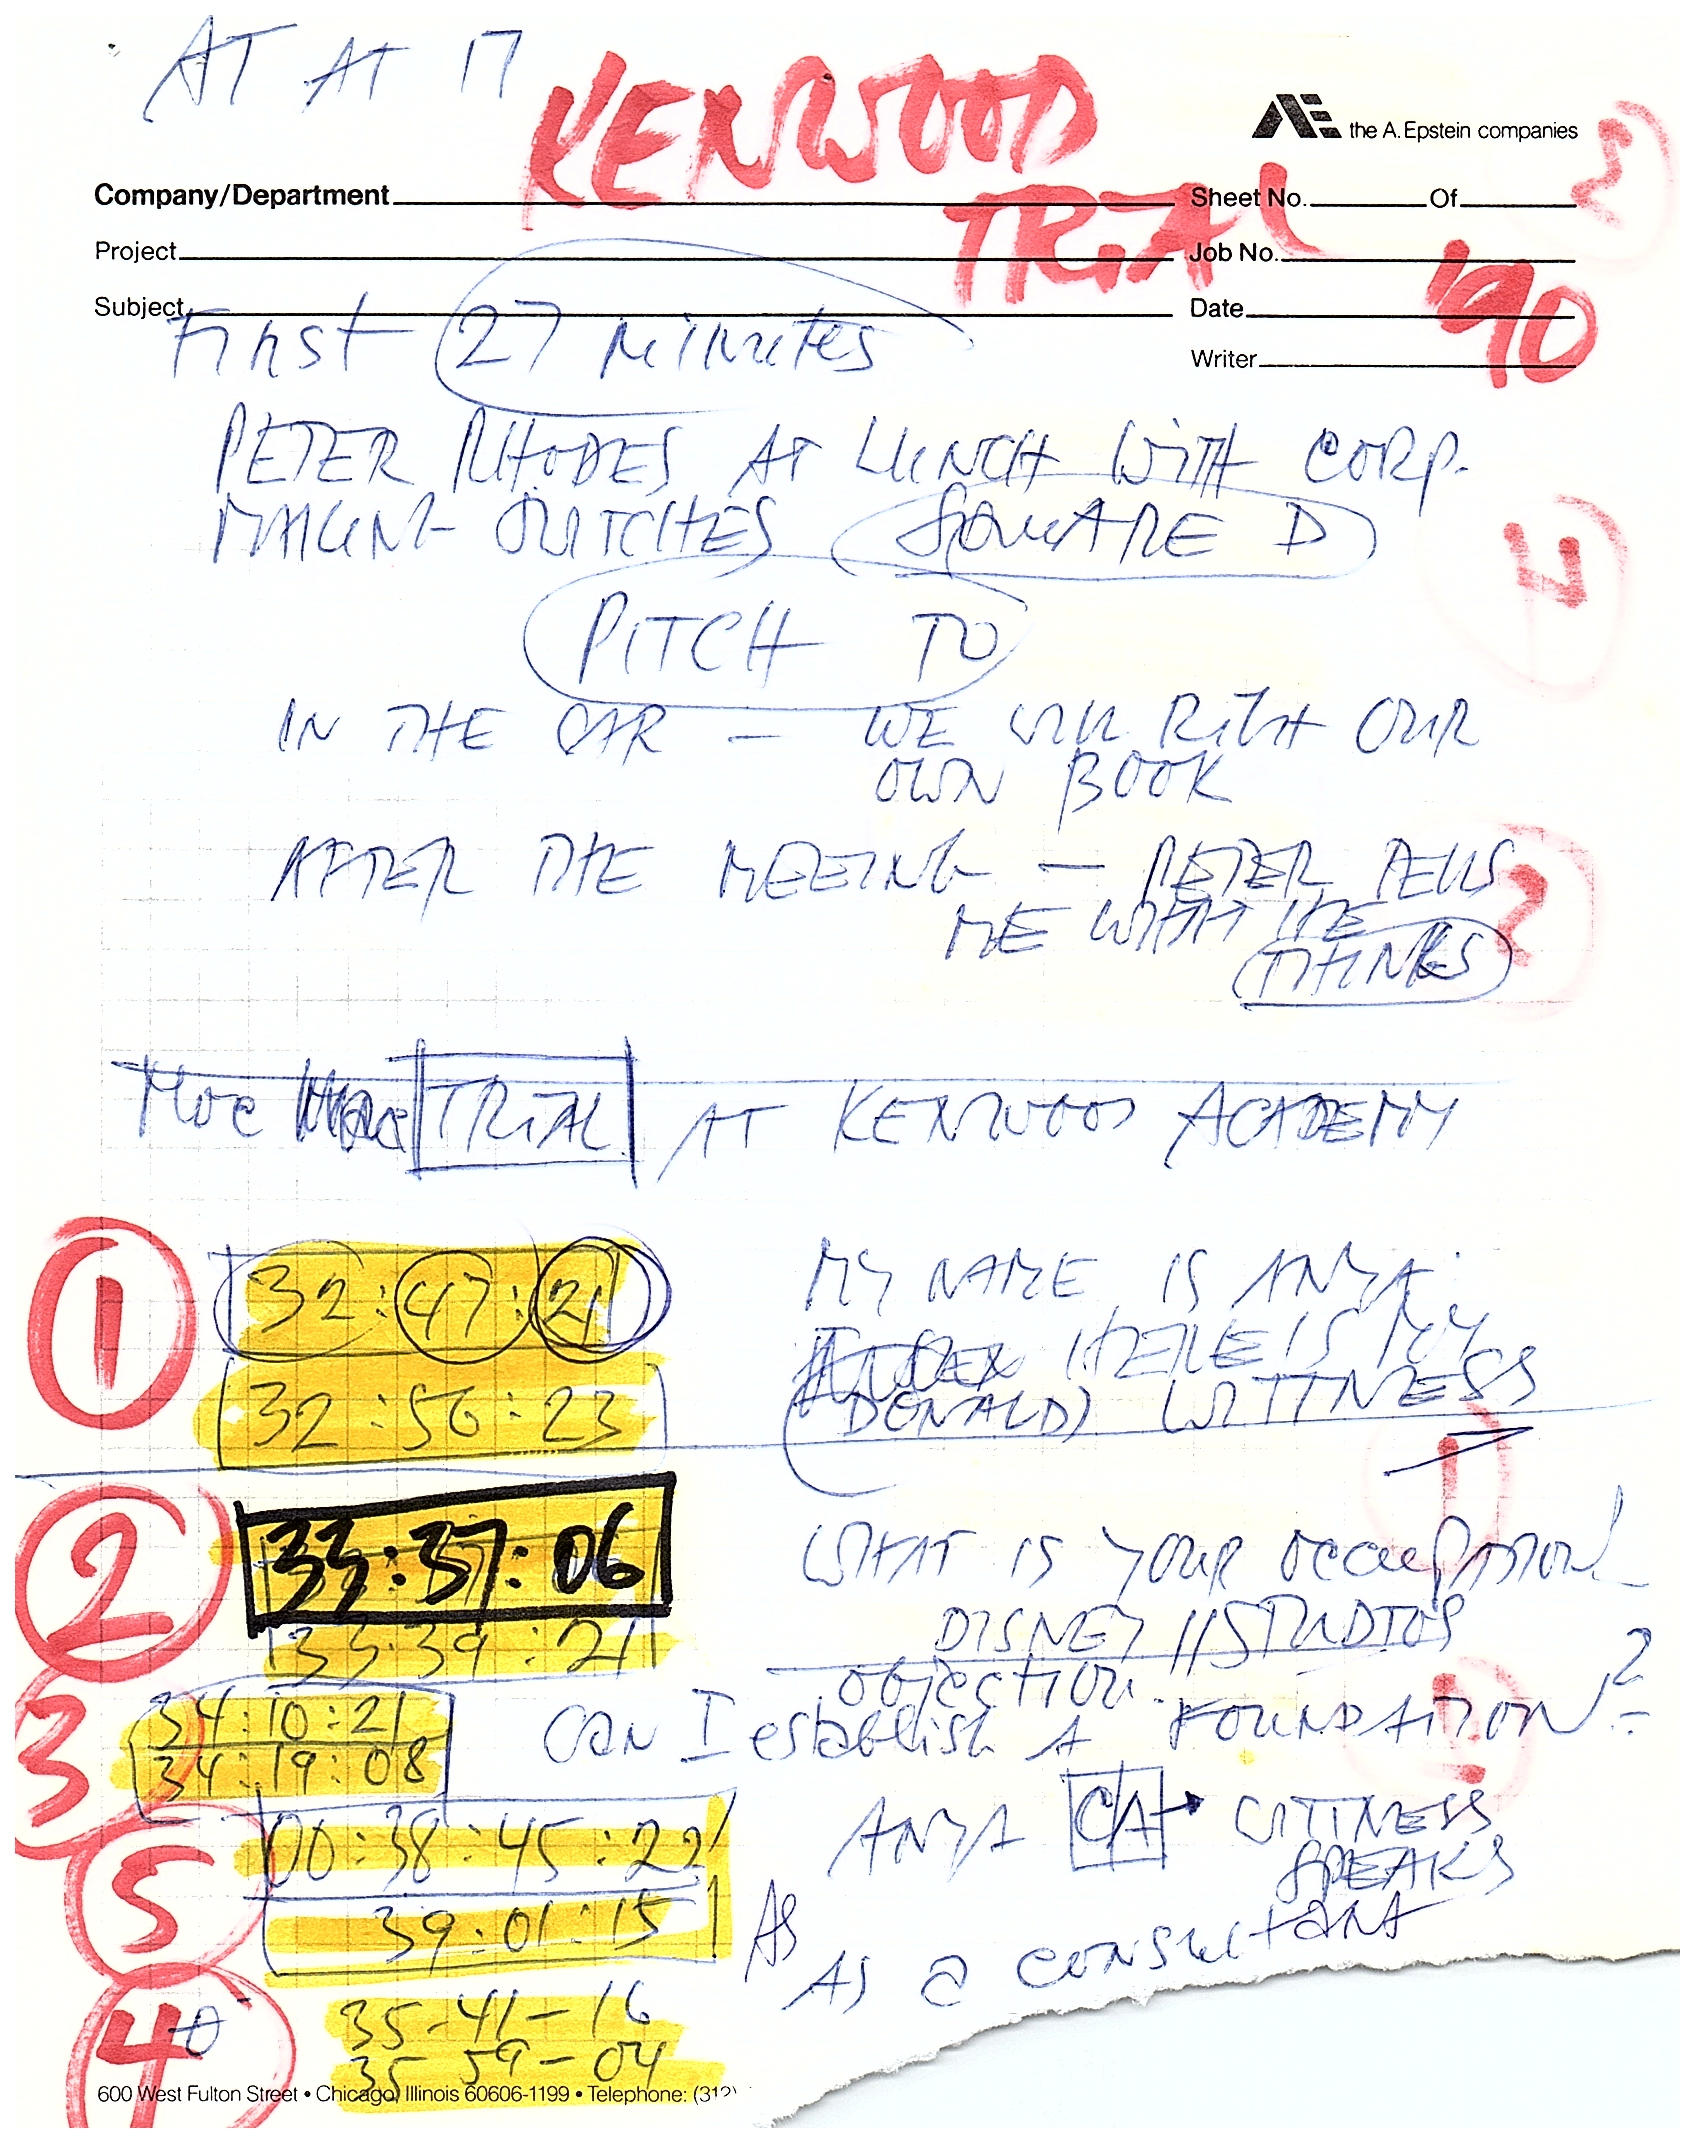 AT AT 17
KENWOOD
TRIAL
'90
AE the A. Epstein companies
Company/Department
Sheet No. Of
Project
Job No.
Subject
Date
Writer
First 27 minutes
PETER RHODES AT LUNCH WITH CORP.
MAKING SWITCHES SQUARE D
PITCH TO
IN THE CAR — WE WILL OUR
OWN BOOK
AFTER THE MEETING — PETER TELLS
ME WHAT HE
THINKS
TRIAL AT KENWOOD ACADEMY
1
32:47:21
MY NAME IS ANYA
HERE IS MY
32:56:23
(DONALD) WITTNESS
2
33:37:06
WHAT IS YOUR OCCUPATION
33:39:21
DISNEY STUDIOS
objection.
3
34:10:21
CAN I establish A FOUNDATION?
34:19:08
5
00:38:45:22
ANYA CA → WITTNESS
SPEAKS
39:01:15
AS
AS a CONSULTANT
4
35-41-16
35 59-04
600 West Fulton Street • Chicago, Illinois 60606-1199 • Telephone: (312)